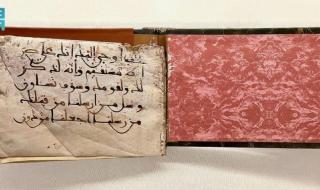 اوحي اليك انك على
صراط مستقيم وانه لذكر
لك ولقومك وسوف تسلون
وسل من ارسلنا من قبلك
من رسلنا اجعلنا من دون